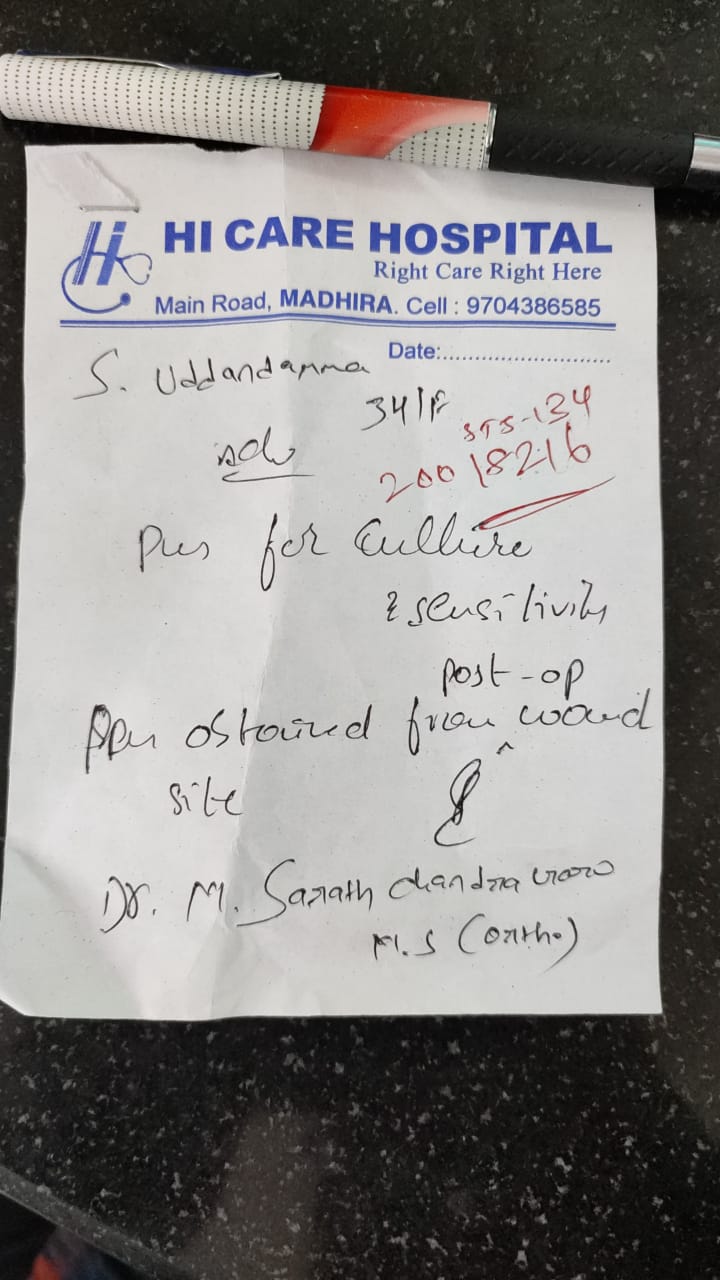 Hi
HI CARE HOSPITAL
Right Care Right Here
Main Road, MADHIRA. Cell : 9704386585
Date:..........................
S. Uddandamma
34/F
STS-134
20018216
Adv
Pus for Culture
& sensitivity
post-op
Pus obtained from ^ wound
site
Dr. M. Sarath chandra varo
M.S (ortho)